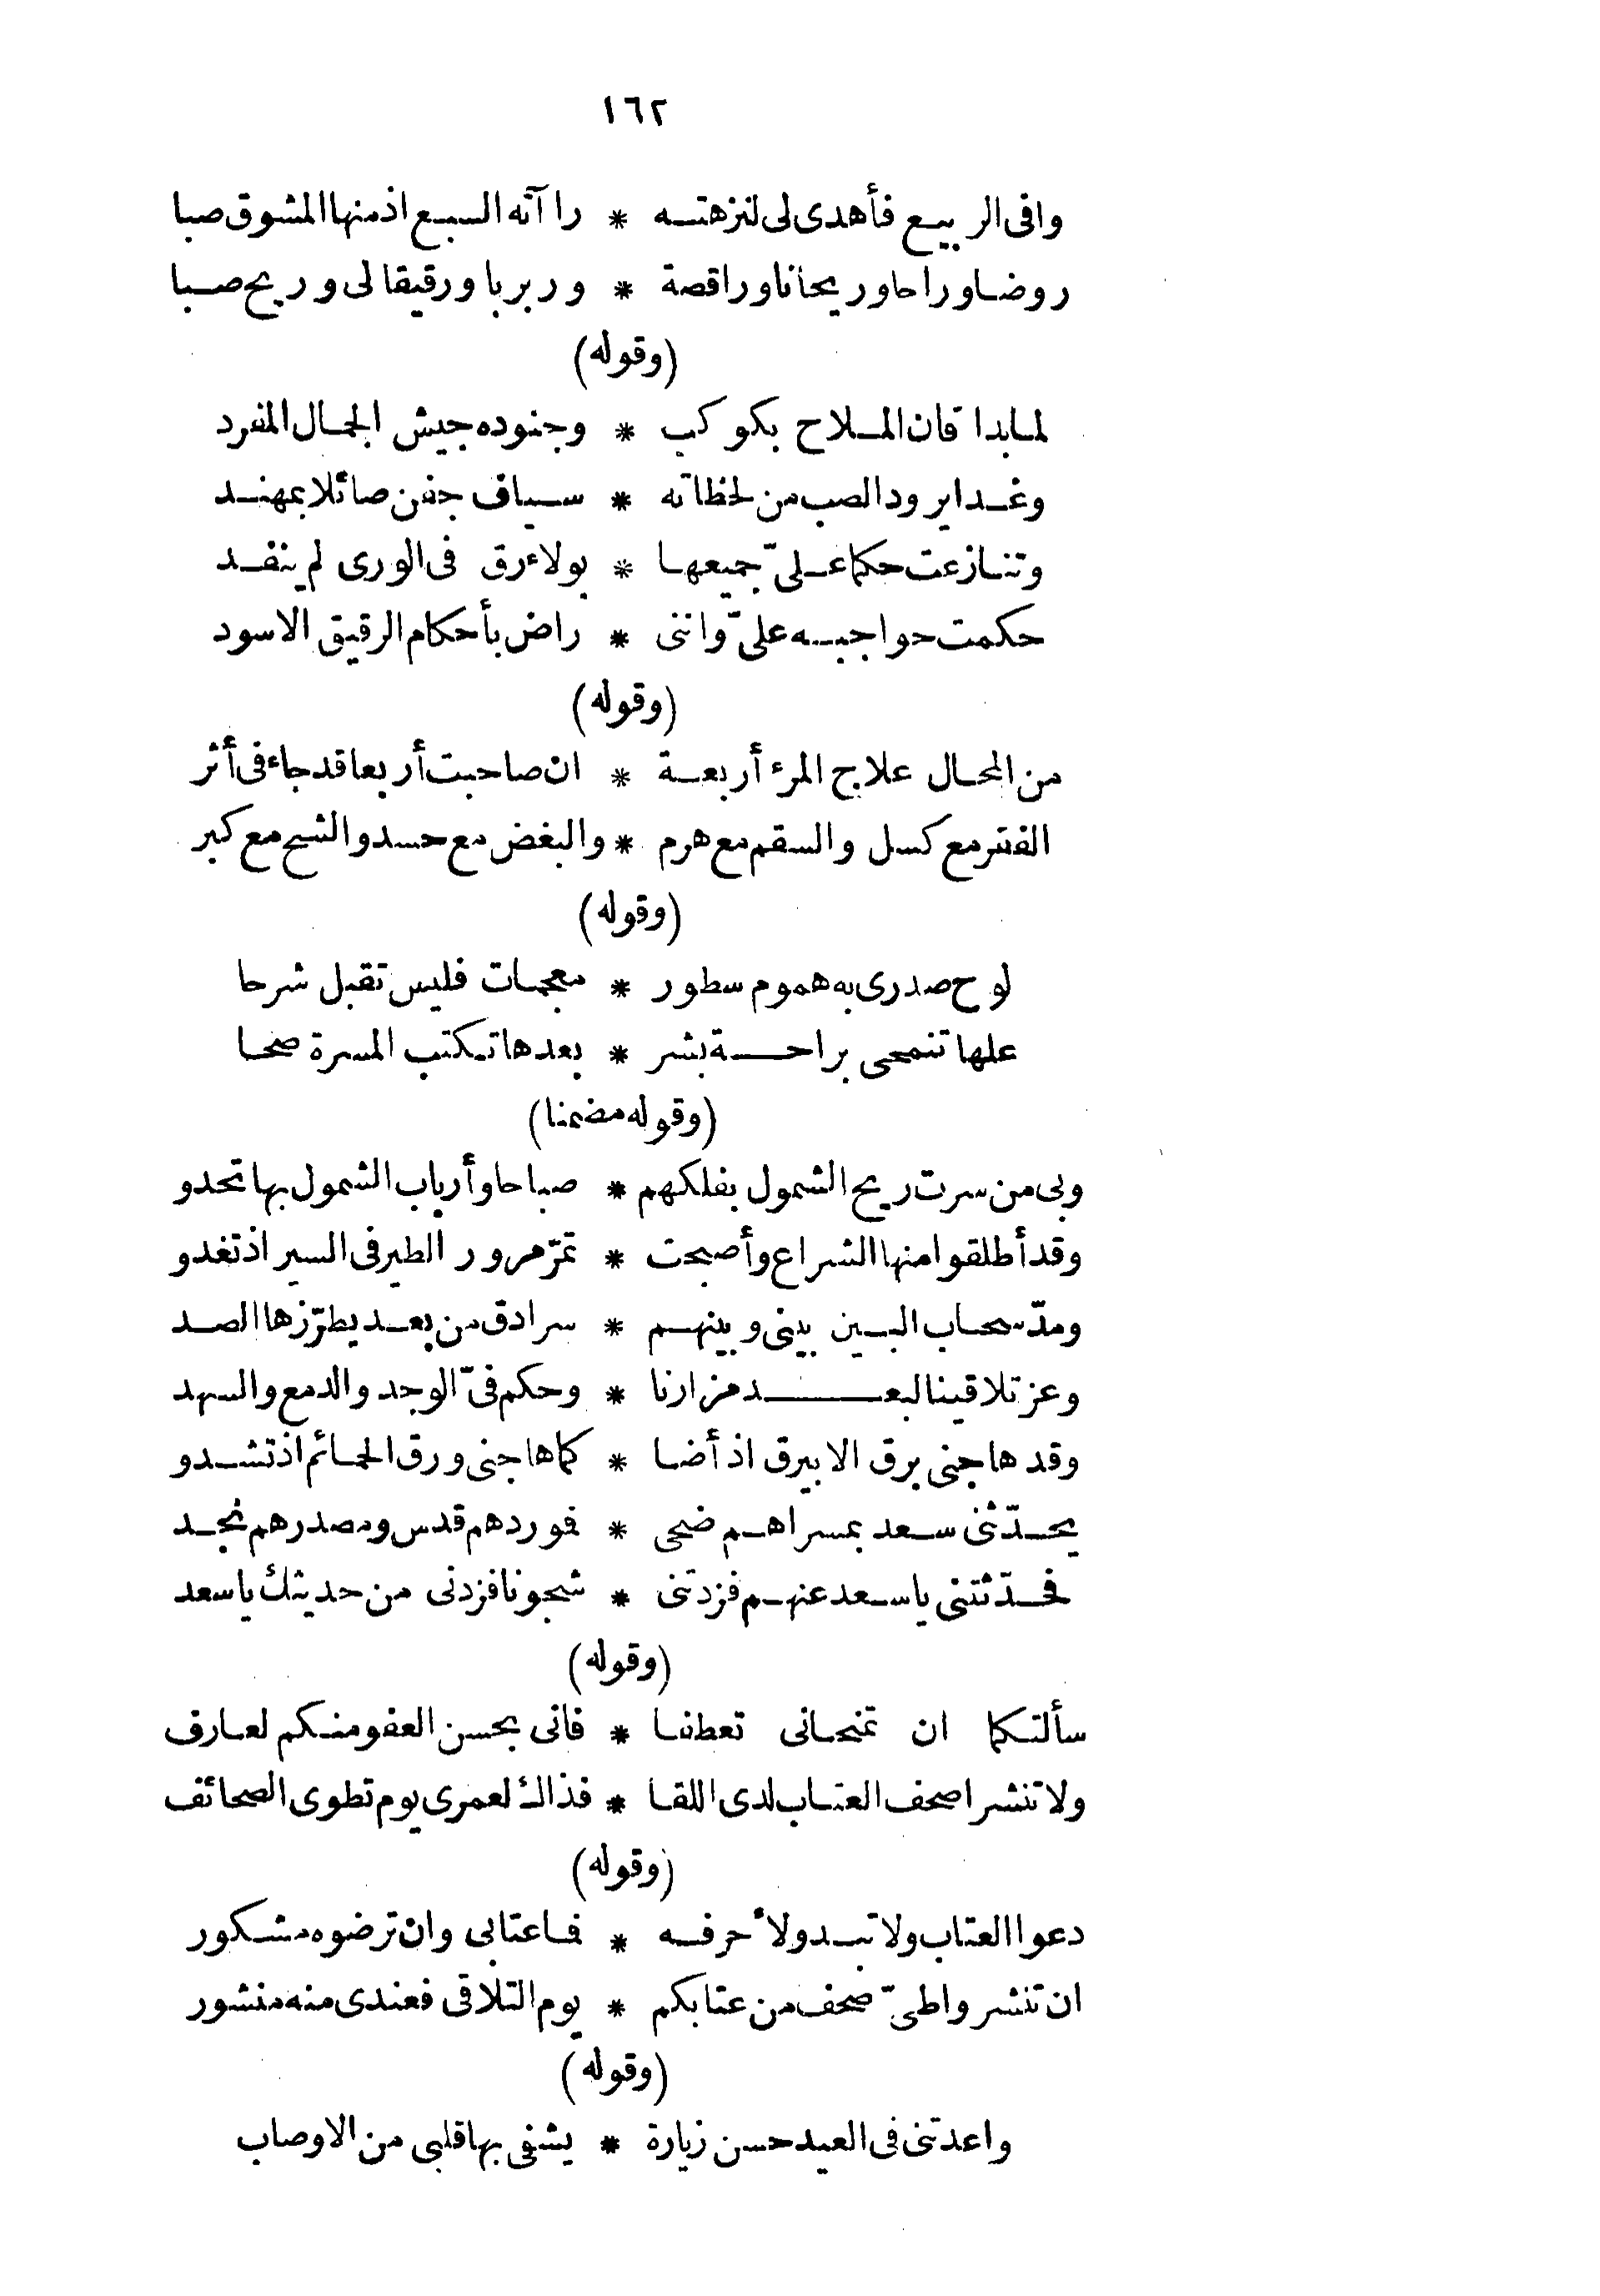 ١٦٢
وافى الربيع فأهدى لى لنزهته * را آته السبع اذ منها المشوق صبا
روضا وراحا وريحانا وراقصة * وربربا ورقيقا لى وريح صبا
(وقوله)
لما بدا قان الملاح بكوكب * وجنوده جيش الجمال المفرد
وغدا يرود الصب من لحظاته * سياف جفن صائلا بمهند
وتنازعت حكما علىّ جميعها * بولاء رق فى الورى لم ينفد
حكمت حواجبه علىّ واننى * راض بأحكام الرقيق الاسود
(وقوله)
من المحال علاج المرء أربعة * ان صاحبت أربعا قد جاء فى أثر
الفقر مع كسل والسقم مع هرم * والبغض مع حسد والشح مع كبر
(وقوله)
لوح صدرى به هموم سطور * معجمات فليس تقبل شرحا
علها تنمحى براحة بشر * بعدها تكتب المسرة صحا
(وقوله مضمنا)
وبى من سرت ريح الشمول بفلكهم * صباحا وأرباب الشمول بها تحدو
وقد أطلقوا منها الشراع وأصبحت * تمرّ مرور الطير فى السير اذ تغدو
ومدّ سحاب البين بينى وبينهم * سرادق من بعد يطرّزها الصد
وعز تلاقينا لبعد مزارنا * وحكم فىّ الوجد والدمع والسهد
وقد هاجنى برق الابيرق اذ أضا * كما هاجنى ورق الحمائم اذ تشدو
يحدّثنى سعد بمسراهم ضحى * فوردهم قدس ومصدرهم نجد
فحدّثتنى ياسعد عنهم فزدتنى * شجونا فزدنى من حديثك ياسعد
(وقوله)
سألتكما ان تمنحانى تعطفا * فانى بحسن العفو منكم لعارف
ولا تنشرا صحف العتاب لدى اللقا * فذاك لعمرى يوم تطوى الصحائف
(وقوله)
دعوا العتاب ولا تبدو لأحرفه * فاعتابى وان ترضوه مشكور
ان تنشروا طىّ صحف من عتابكم * يوم التلاقى فعندى منه منشور
(وقوله)
واعدتنى فى العيد حسن زيارة * يشفى بها قلبى من الاوصاب